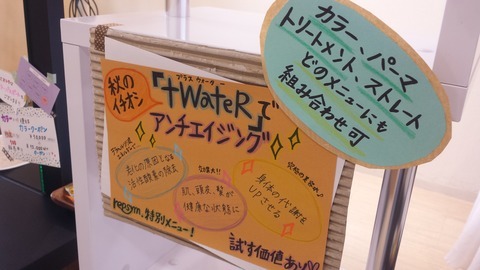 カラー、パーマ
トリートメント、ストレート
どのメニューにも
組み合わせ可
秋の
イチオシ
プラス ウォーター
「+WateR」で
アンチエイジング
老化の原因となる
活性酸素の除去
肌、頭皮、髪が
健康な状態に
身体の代謝を
UPさせる
特別メニュー!
試す価値あり!!